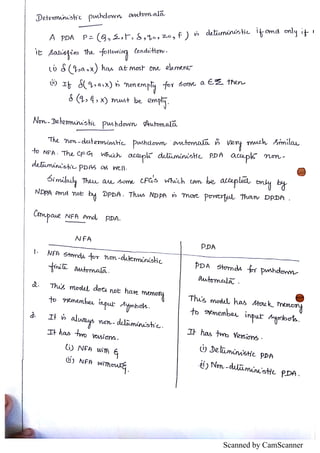 Deterministic pushdown automata
A PDA P = (Q, Σ, Γ, δ, q0, z0, F) is deterministic if and only if
it satisfies the following condition.
(i) δ(q, a, x) has at most one element
(ii) If δ(q, a, x) is nonempty for some a ∈ Σ then
δ(q, ε, x) must be empty.
Non-Deterministic pushdown Automata
The non-deterministic pushdown automata is very much similar
to NFA. The CFG which accepts deterministic PDA accepts non-
deterministic PDAs as well.
Similarly There are some CFG's which can be accepted only by
NDPA and not by DPDA. Thus NDPA is more powerful Than DPDA.
Compare NFA and PDA.
NFA
PDA
1. NFA stands for non-deterministic
finite Automata.
PDA stands for pushdown
Automata.
2. This model does not have memory
to remember input symbols.
This model has stack memory
to remember input symbols.
3. It is always non-deterministic.
It has two versions.
(i) NFA with ε
(ii) NFA without ε.
It has two versions.
(i) Deterministic PDA
(ii) Non-deterministic PDA.
Scanned by CamScanner